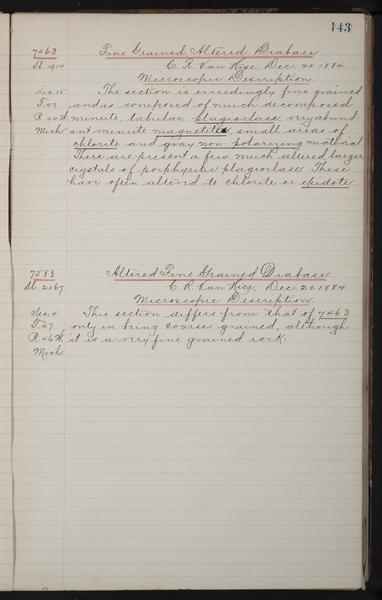 143
7463 Fine Grained Altered Diabase.
Sl. 1914 C. R. Van Hise, Dec. 20. 1884
Microscopic Description.
Sec. 15 The section is exceedingly fine grained
T. 47 and is composed of much decomposed
R. 44 W. minute, tabular plagioclase very abund
Mich ant minute magnetite small areas of
chlorite and gray non-polarizing material
There are present a few much altered, larger
crystals of porphyritic plagioclase. These
have often altered to chlorite or epidote.
7583 Altered Fine Grained Diabase
Sl. 2067 C. R. Van Hise, Dec. 20. 1884
Microscopic Description.
Sec. 4 This section differs from that of 7463
T. 47 only in being coarser grained, although
R. 46 W. it is a very fine grained rock.
Mich.